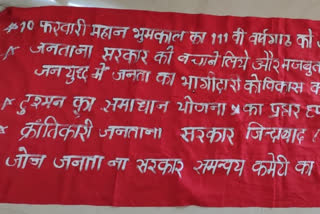 * 10 फरवरी महान भूमकाल का 111 वी वर्षगाठ को
* जनताना सरकार की बचाने लिये और मजबुत
जनयुद्ध में जनता का भागीदारी को विकास क
* दुश्मन का समाधान योजना का प्रहार
* क्रांतिकारी जनताना सरकार जिन्दाबाद !
जोन जनताना सरकार समन्वय कमेटी का